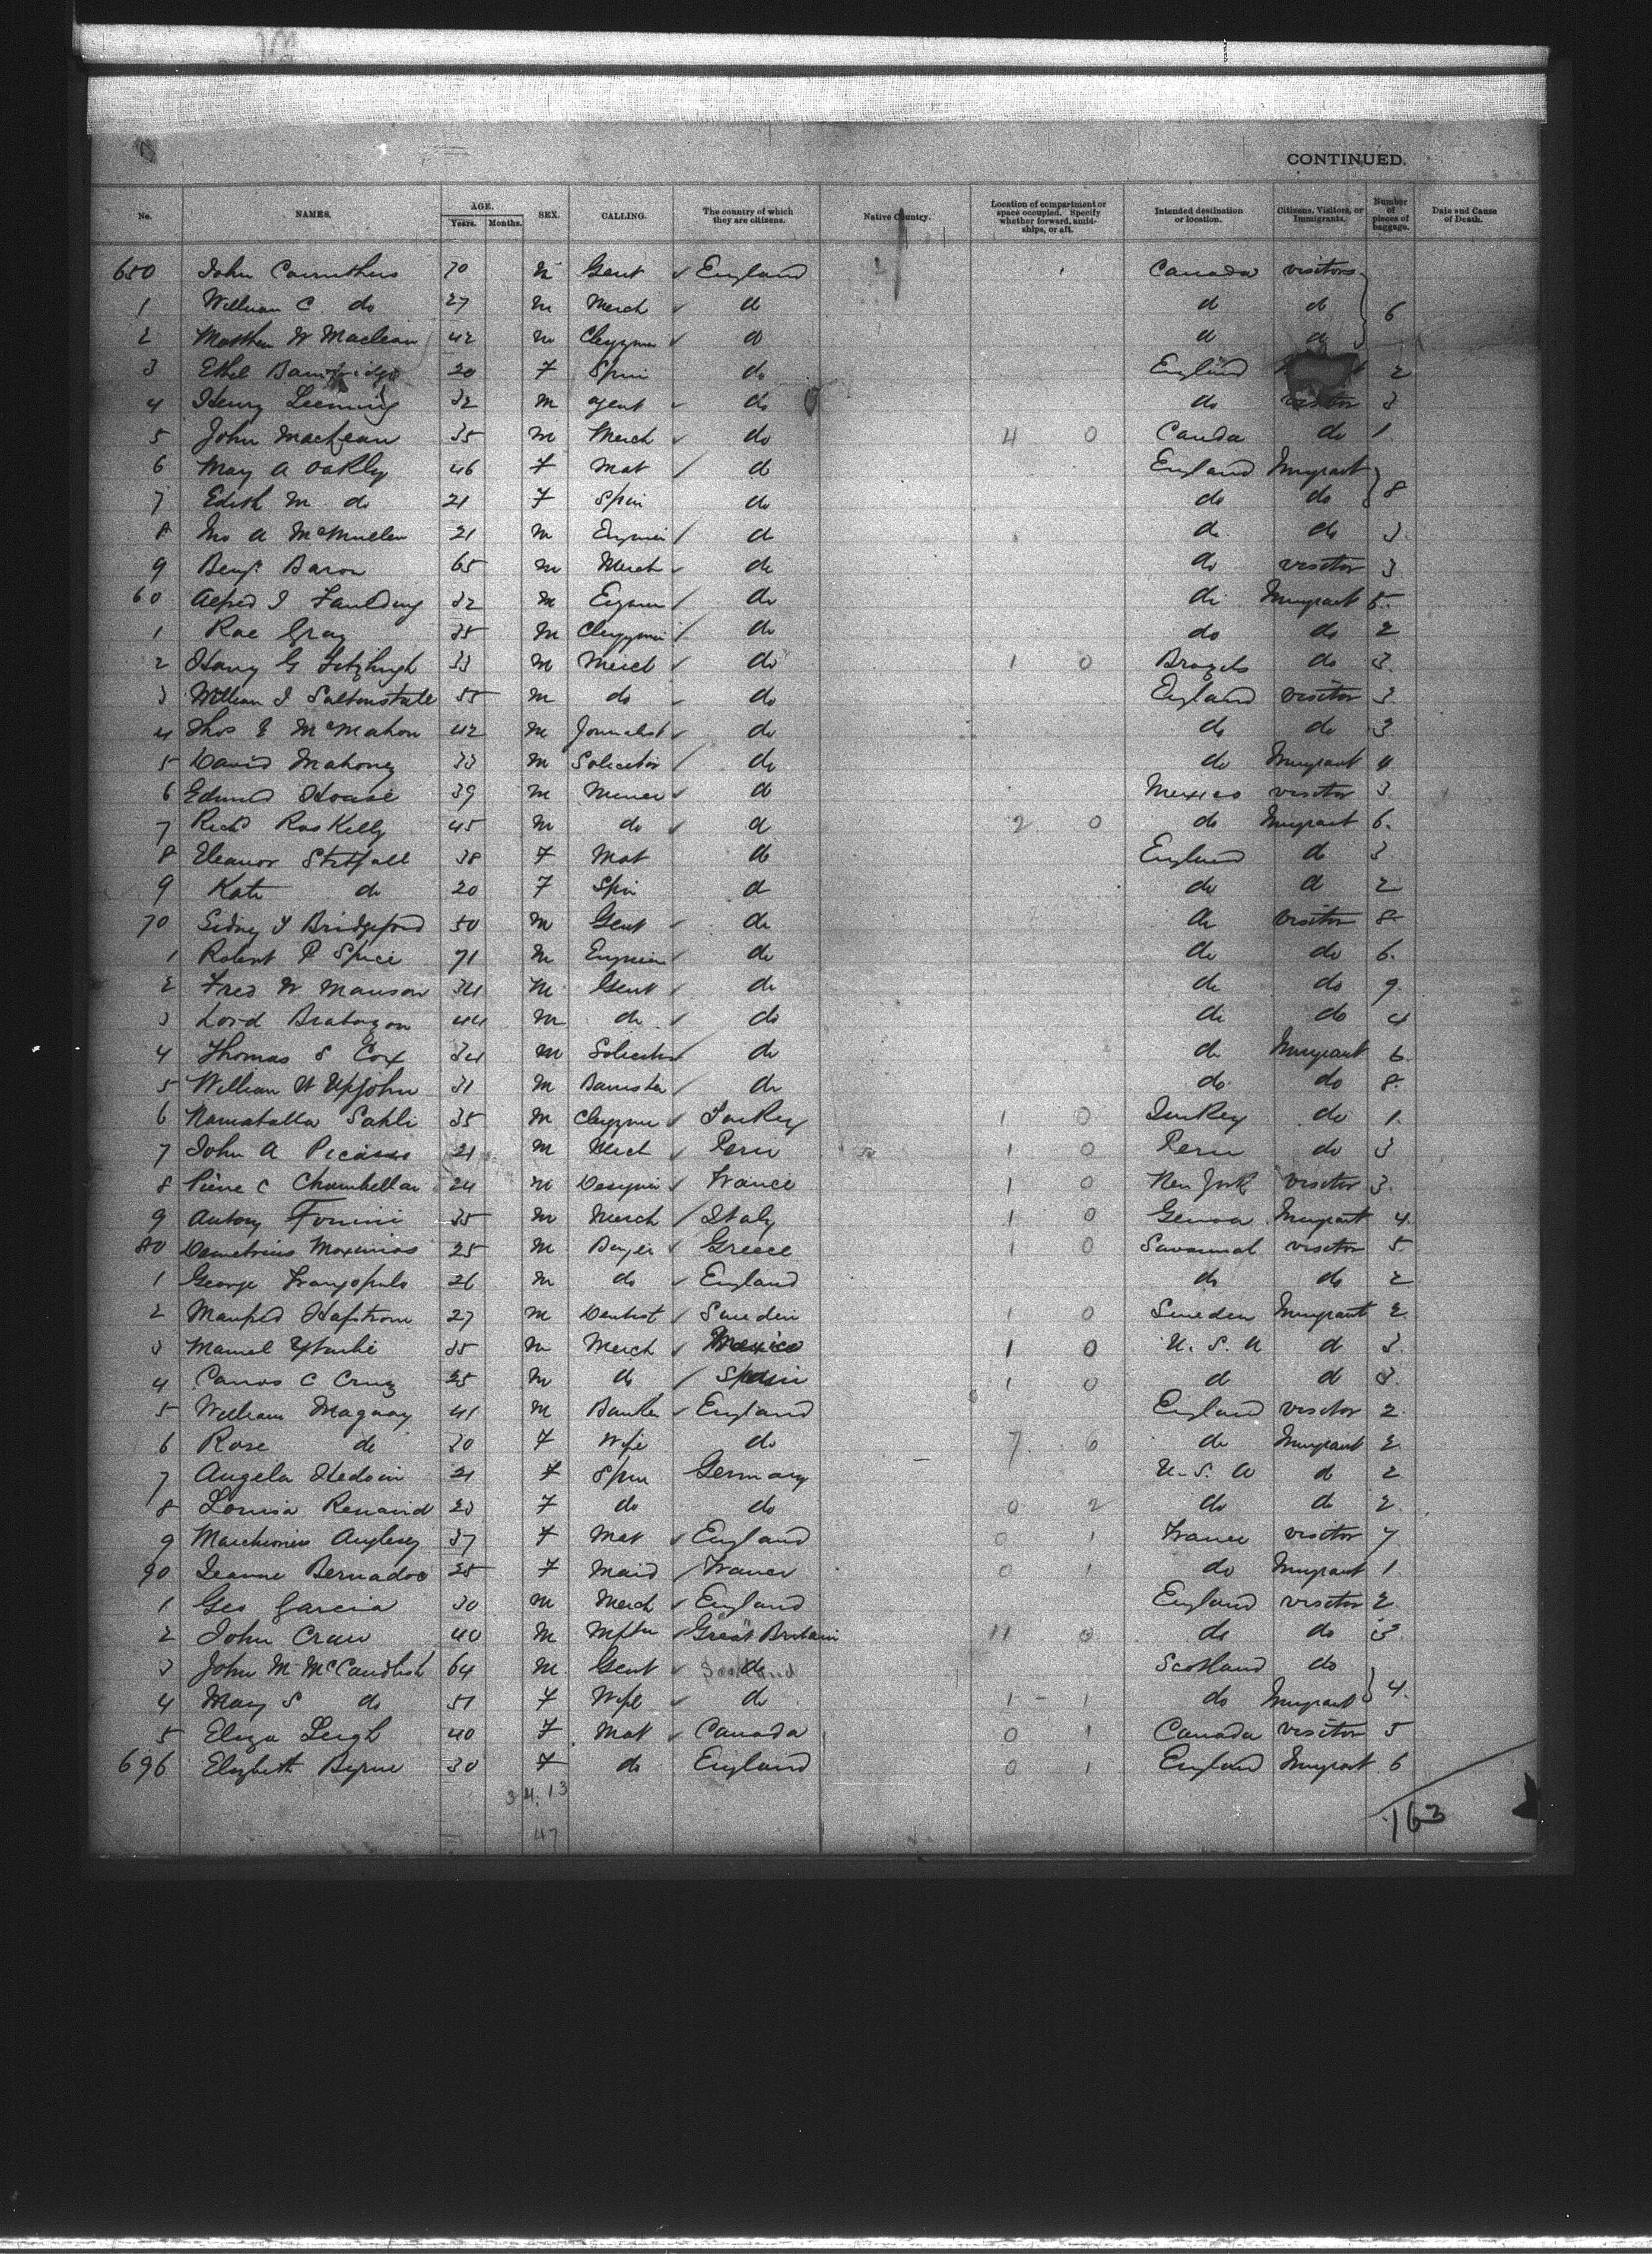 CONTINUED.
No. NAMES. AGE. Years. Months. SEX. CALLING. The country of which they are citizens. Native Country. Location of compartment or space occupied. Specify whether forward, amidships, or aft. Intended destination or location. Citizens, Visitors, or Immigrants. Number of pieces of baggage. Date and Cause of Death.
650 John Carruthers 70 M Gent England Canada visitors
1 William C do 27 M Merch do do do 6
2 Matthew W Maclean 42 M Clergyman do do do
3 Ethel 20 F Spin do England 2
4 Henry Leeming 32 M agent do do visitor 3
5 John MacLean 35 M Merch do 4 0 Canda do 1
6 May A Oakly 46 F Mat do England Imigrant
7 Edith M do 21 F Spin do do do 8
8 Jno A McMullen 21 M do do do 3
9 Benj. Baron 65 M Merch do do visitor 3
60 Alfred J Faulding 32 M do do Imigrant 5
1 Rae Gray 35 M Clergyman do do do 2
2 Harry G Fitzhugh 33 M Merct do 1 0 do 3
3 William J Saltonstall 55 M do do England visitor 3
4 Thos E McMahon 42 M Journalist do do do 3
5 David Mahony 33 M Solicitor do do Imigrant 4
6 Edmund House 39 M Miner do Mexico visitor 3
7 Richd RosKelly 45 M do do 2 0 do Imigrant 6
8 Eleanor 38 F Mat do England do 3
9 Kate do 20 F Spin do do do 2
70 Sidney Bridgeford 50 M Gent do do visitor 8
1 Robert P Spice 71 M do do do 6
2 Fred W Manson 34 M Gent do do do 9
3 Lord Brabazon 44 M do do do do 4
4 Thomas S Cox 34 M Solicitor do do Imigrant 6
5 William W Upjohn 31 M Barrister do do do 8
6 Namatalla Sahli 35 M Clergyman Turkey 1 0 Turkey do 1
7 John A Picasso 21 M Merct Peru 1 0 Peru do 3
8 Pierre C Chambellan 24 M Designer France 1 0 New York visitor 3
9 Antony 35 M Merch Italy 1 0 Genoa Imigrant 4
80 Demetrius Maximos 25 M Buyer Greece 1 0 Savannah visitor 5
1 George Frangopulo 26 M do England do do 2
2 Manfred Hafstrom 27 M Dentist Sweden 1 0 Sweden Imigrant 2
3 Manuel 35 M Merch Mexico 1 0 U. S. A do 3
4 C Cruz 25 M do Spain 1 0 do do 3
5 William Magnay 41 M Banker England England visitor 2
6 Rose do 30 F Wife do 7 6 do Imigrant 2
7 Angela 21 F Spin Germany U. S. A do 2
8 Louisa Renaud 23 F do do 0 2 do do 2
9 Marchioness Anglesey 37 F Mat England 0 1 France visitor 7
90 Jeanne 25 F Maid France 0 1 do Imigrant 1
1 Geo Garcia 30 M Merch England England visitor 2
2 John Craw 40 M Great Britain 11 0 do do 3
3 John M McCandlish 64 M Gent do Scotland Scotland do
4 May S do 51 F Wife do 1 - 1 do Imigrant 4
5 Eliza Leigh 40 F Mat Canada 0 1 Canada visitor 5
696 Elizbeth Byrne 30 F do England 0 1 England Imigrant 6
34. 13
47
163